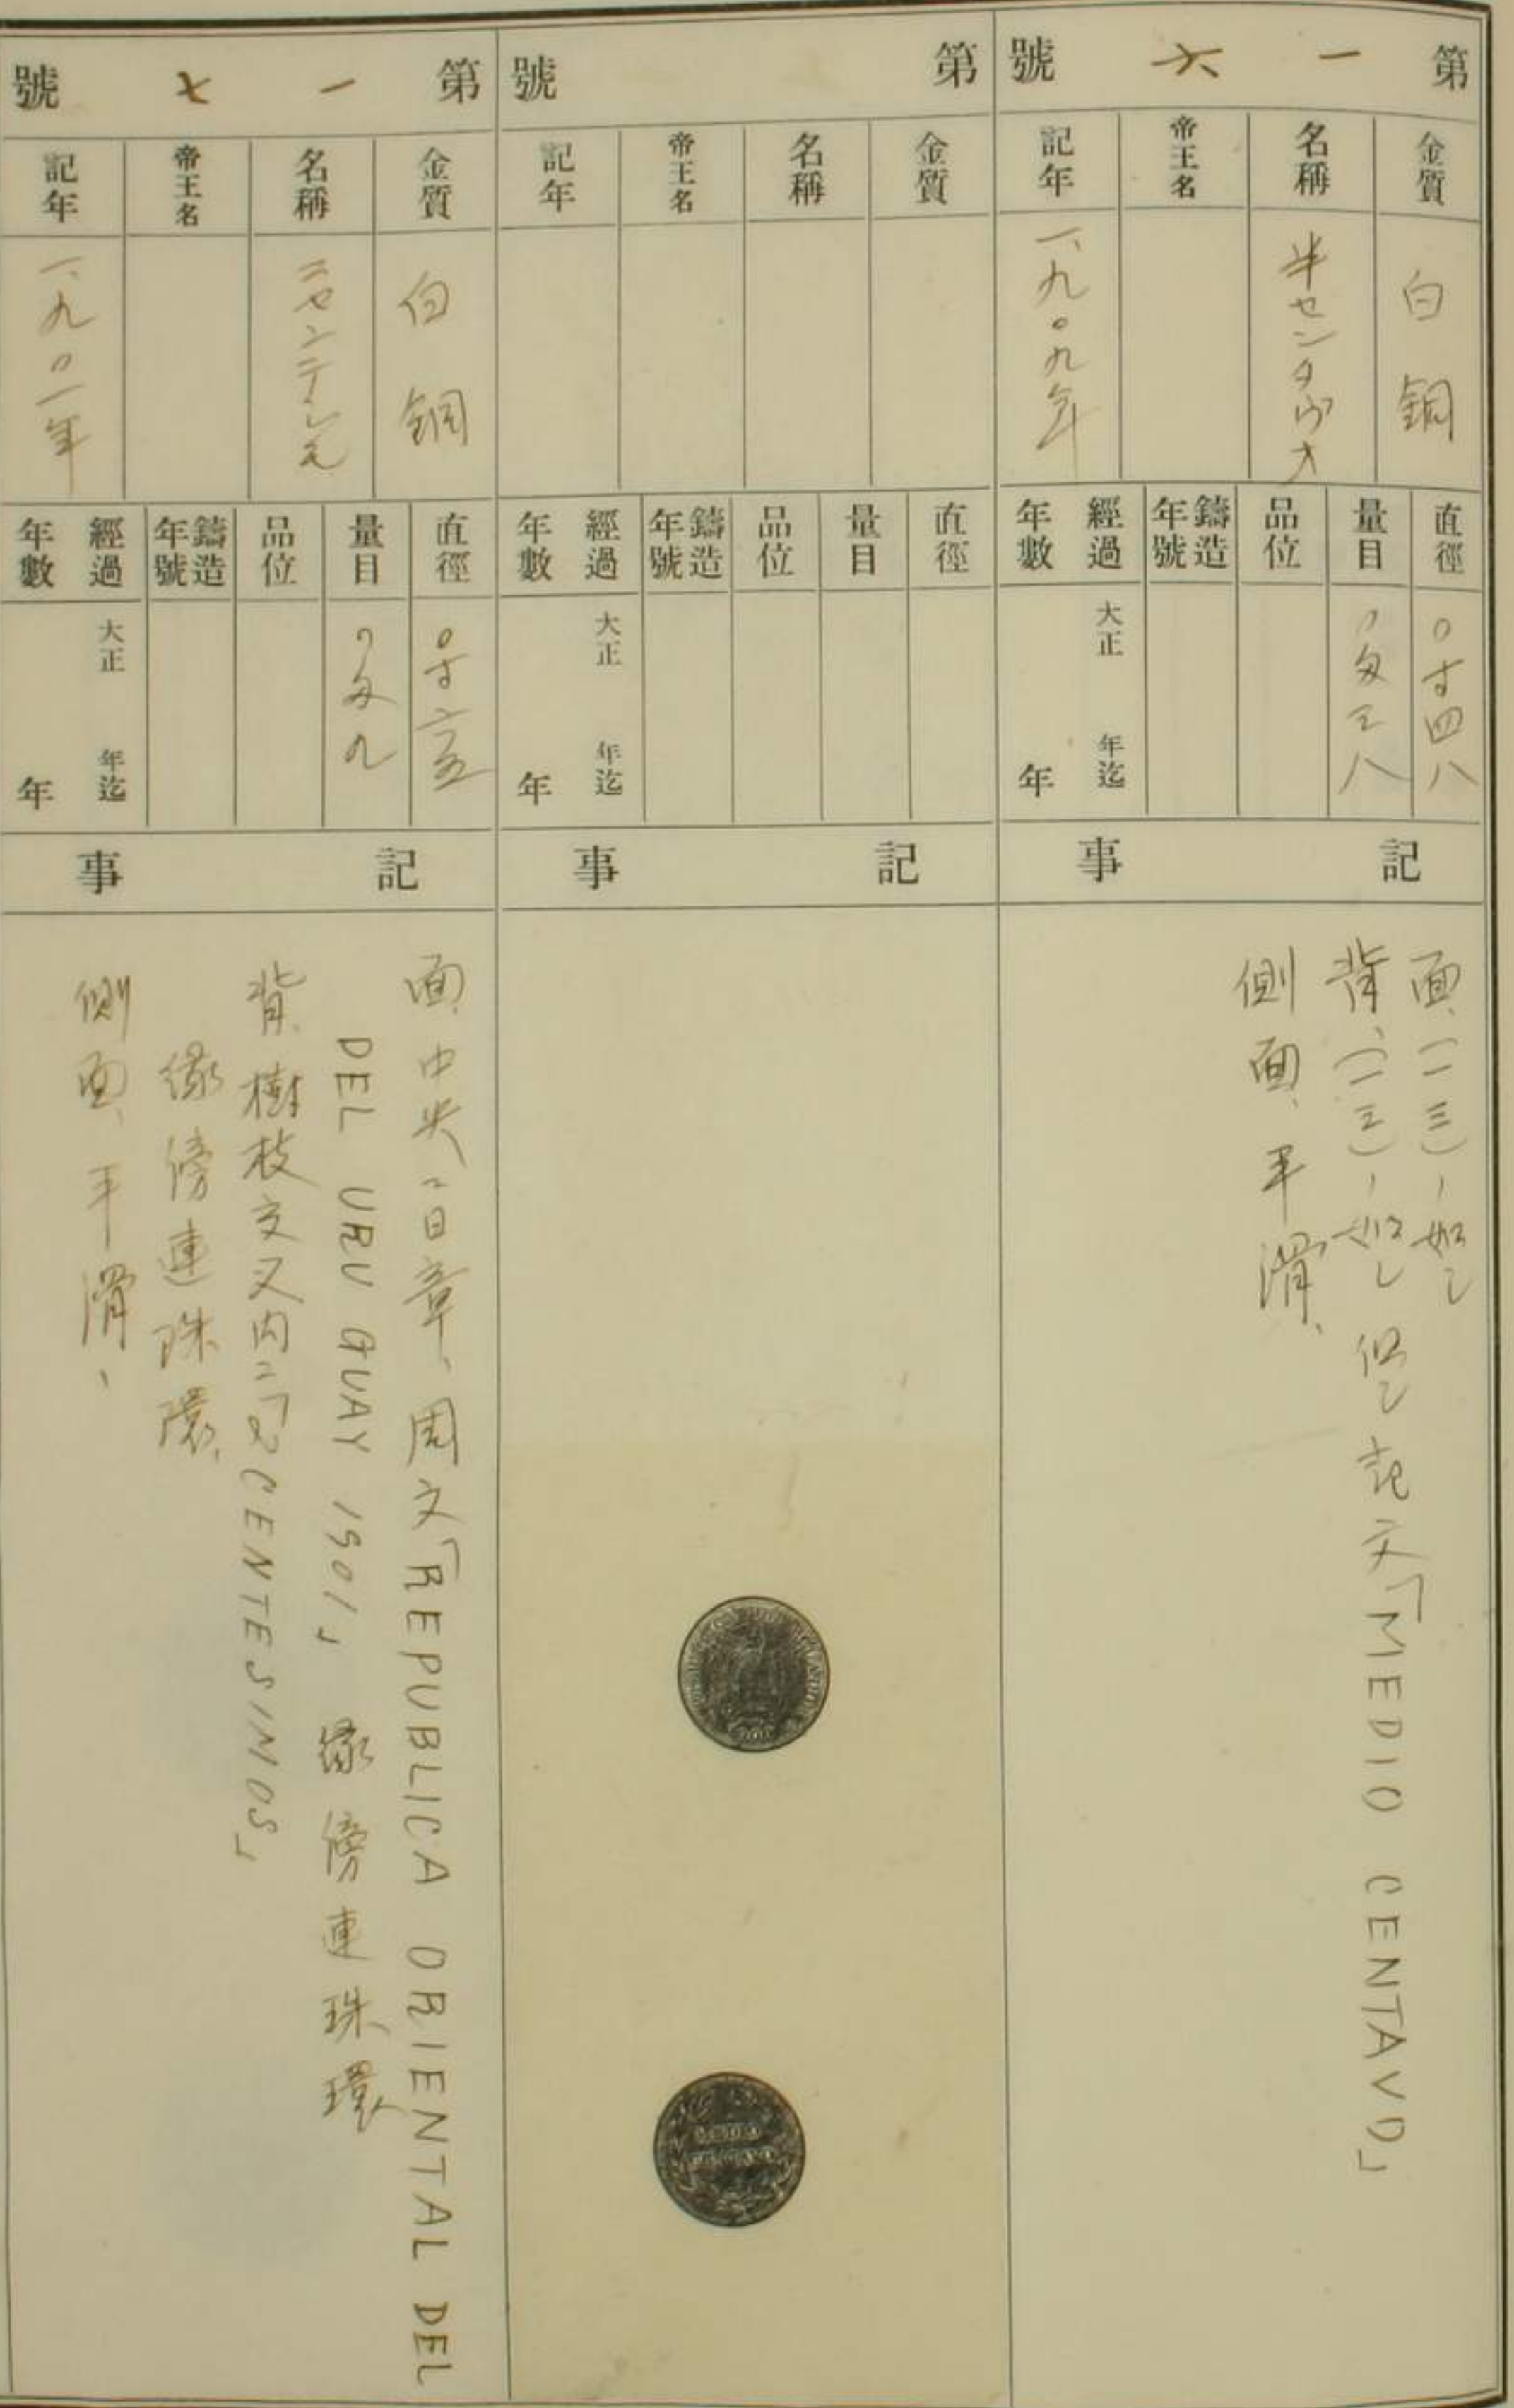 第一六號
金質
白銅
名稱
半センタヴオ
帝王名
記年
一、九〇九年
直徑
〇寸四八
量目
〇匁三八
品位
鑄造年號
經過年數
大正 年迄
年
記事
面、(一三)ノ如シ
背、(一三)ノ如シ 但シ記文「MEDIO CENTAVO」
側面、平滑、
第 號
金質
名稱
帝王名
記年
直徑
量目
品位
鑄造年號
經過年數
大正 年迄
年
記事
第一七號
金質
白銅
名稱
二センテシモ
帝王名
記年
一、九〇一年
直徑
〇寸六五
量目
〇匁九
品位
鑄造年號
經過年數
大正 年迄
年
記事
面、中央ニ日章、周文「REPUBLICA ORIENTAL DEL
DEL URUGUAY 1901」 緣傍連珠環
背、樹枝交叉内ニ「2 CENTESIMOS」
緣傍連珠環、
側面、平滑、